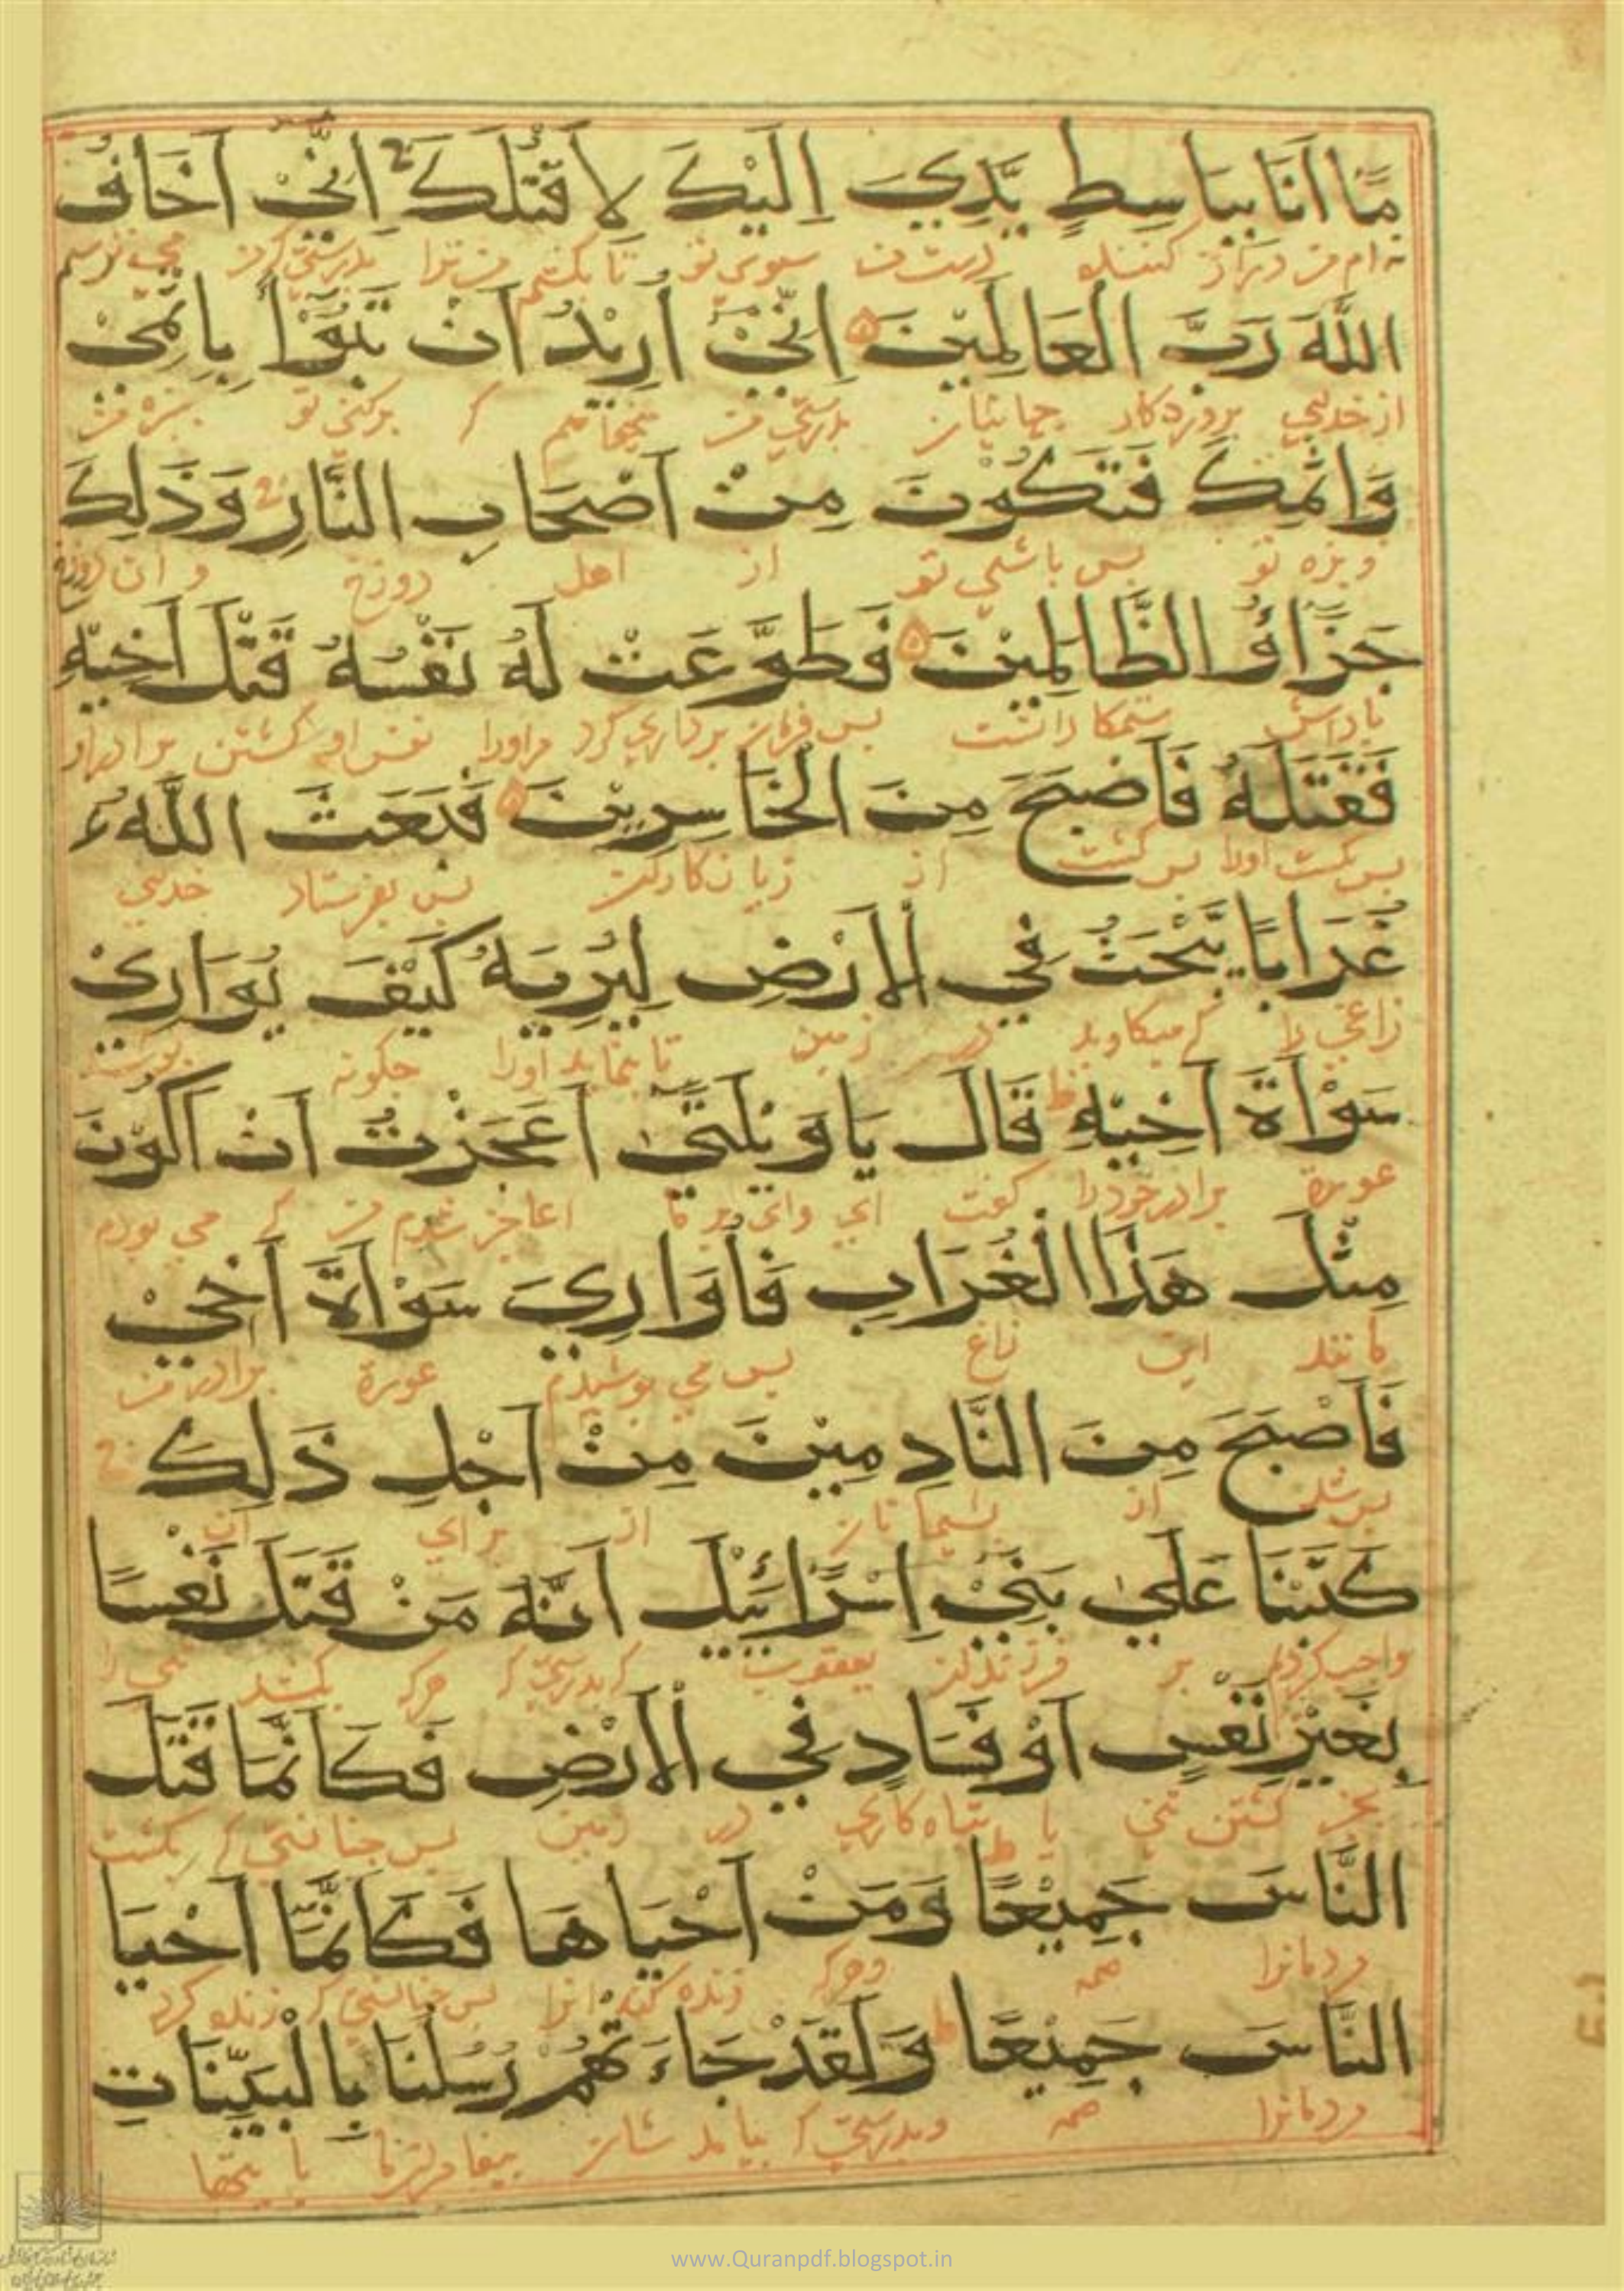 مَّا اَنَا بِبَاسِطٍ يَّدِيَ اِلَيْكَ لِاَقْتُلَكَ اِنِّيْ اَخَافُ
نه ام من دراز کننده دست من سوی تو تا بکشم من ترا بدرستی که من می ترسم
اللّٰهَ رَبَّ الْعَالَمِيْنَ اِنِّيْ اُرِيْدُ اَنْ تَبُوْٓءَا بِاِثْمِيْ
از خدای پروردکار جهانیان بدرستی من میخواهم که برکنی تو ببزه من
وَاِثْمِكَ فَتَكُوْنَ مِنْ اَصْحَابِ النَّارِ وَذَلِكَ
و بزه تو پس باشی تو از اهل دوزخ و ان دوزخ
جَزَاؤُ الظَّالِمِيْنَ فَطَوَّعَتْ لَهُ نَفْسُهُ قَتْلَ اَخِيْهِ
پاداش ستمکارانست پس فرمان برداری کرد مراورا نفس او کشتن برادر او
فَقَتَلَهُ فَاَصْبَحَ مِنَ الْخَاسِرِيْنَ فَبَعَثَ اللّٰهُ
پس بکشت اورا پس کشت از زیان کاران پس بفرستاد خدای
غُرَابًا يَّبْحَثُ فِي الْاَرْضِ لِيُرِيَهُ كَيْفَ يُوَارِيْ
زاغی را که میکاوید در زمین تا بنماید اورا چکونه بپوشد
سَوْاَةَ اَخِيْهِ قَالَ يَا وَيْلَتٰىٓ اَعَجَزْتُ اَنْ اَكُوْنَ
عورة برادر خود را کفت ای وای بر ما اعاجز شدم من که می بودم
مِثْلَ هَذَا الْغُرَابِ فَاُوَارِيَ سَوْاَةَ اَخِيْ
مانند این زاغ پس می پوشیدم عورة برادر من
فَاَصْبَحَ مِنَ النَّادِمِيْنَ مِنْ اَجْلِ ذَلِكَ
پس شد از پشیمانان از برای ان
كَتَبْنَا عَلٰي بَنِيْ اِسْرَائِيْلَ اَنَّهُ مَنْ قَتَلَ نَفْسًا
واجب کردیم بر فرزندان یعقوب که بدرستی که هرکه بکشد تنی را
بِغَيْرِ نَفْسٍ اَوْ فَسَادٍ فِي الْاَرْضِ فَكَاَنَّمَا قَتَلَ
بجز کشتن تنی یا تباه کاری در زمین پس چنانستی که بکشت
النَّاسَ جَمِيْعًا وَمَنْ اَحْيَاهَا فَكَاَنَّمَا اَحْيَا
مردمانرا همه و هرکه زنده کند انرا پس چنانستی که زنده کرد
النَّاسَ جَمِيْعًا وَلَقَدْ جَاءَتْهُمْ رُسُلُنَا بِالْبَيِّنَاتِ
مردمانرا همه و بدرستی که بیامد شان پیغامبران ما با
www.Quranpdf.blogspot.in